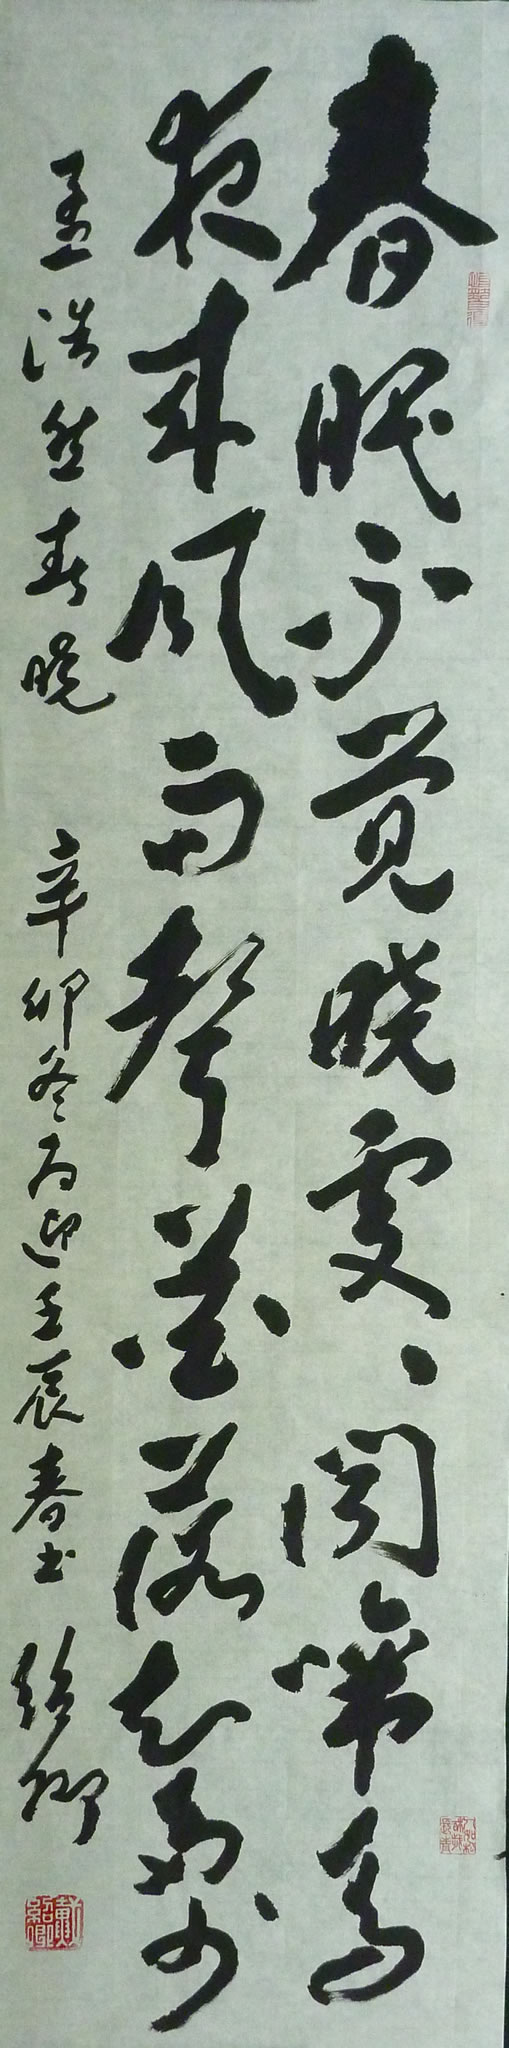 春眠不觉晓处处闻啼鸟
夜来风雨声花落知多少
孟浩然春晓 辛卯冬为迎壬辰春书 绍卿
戴绍卿